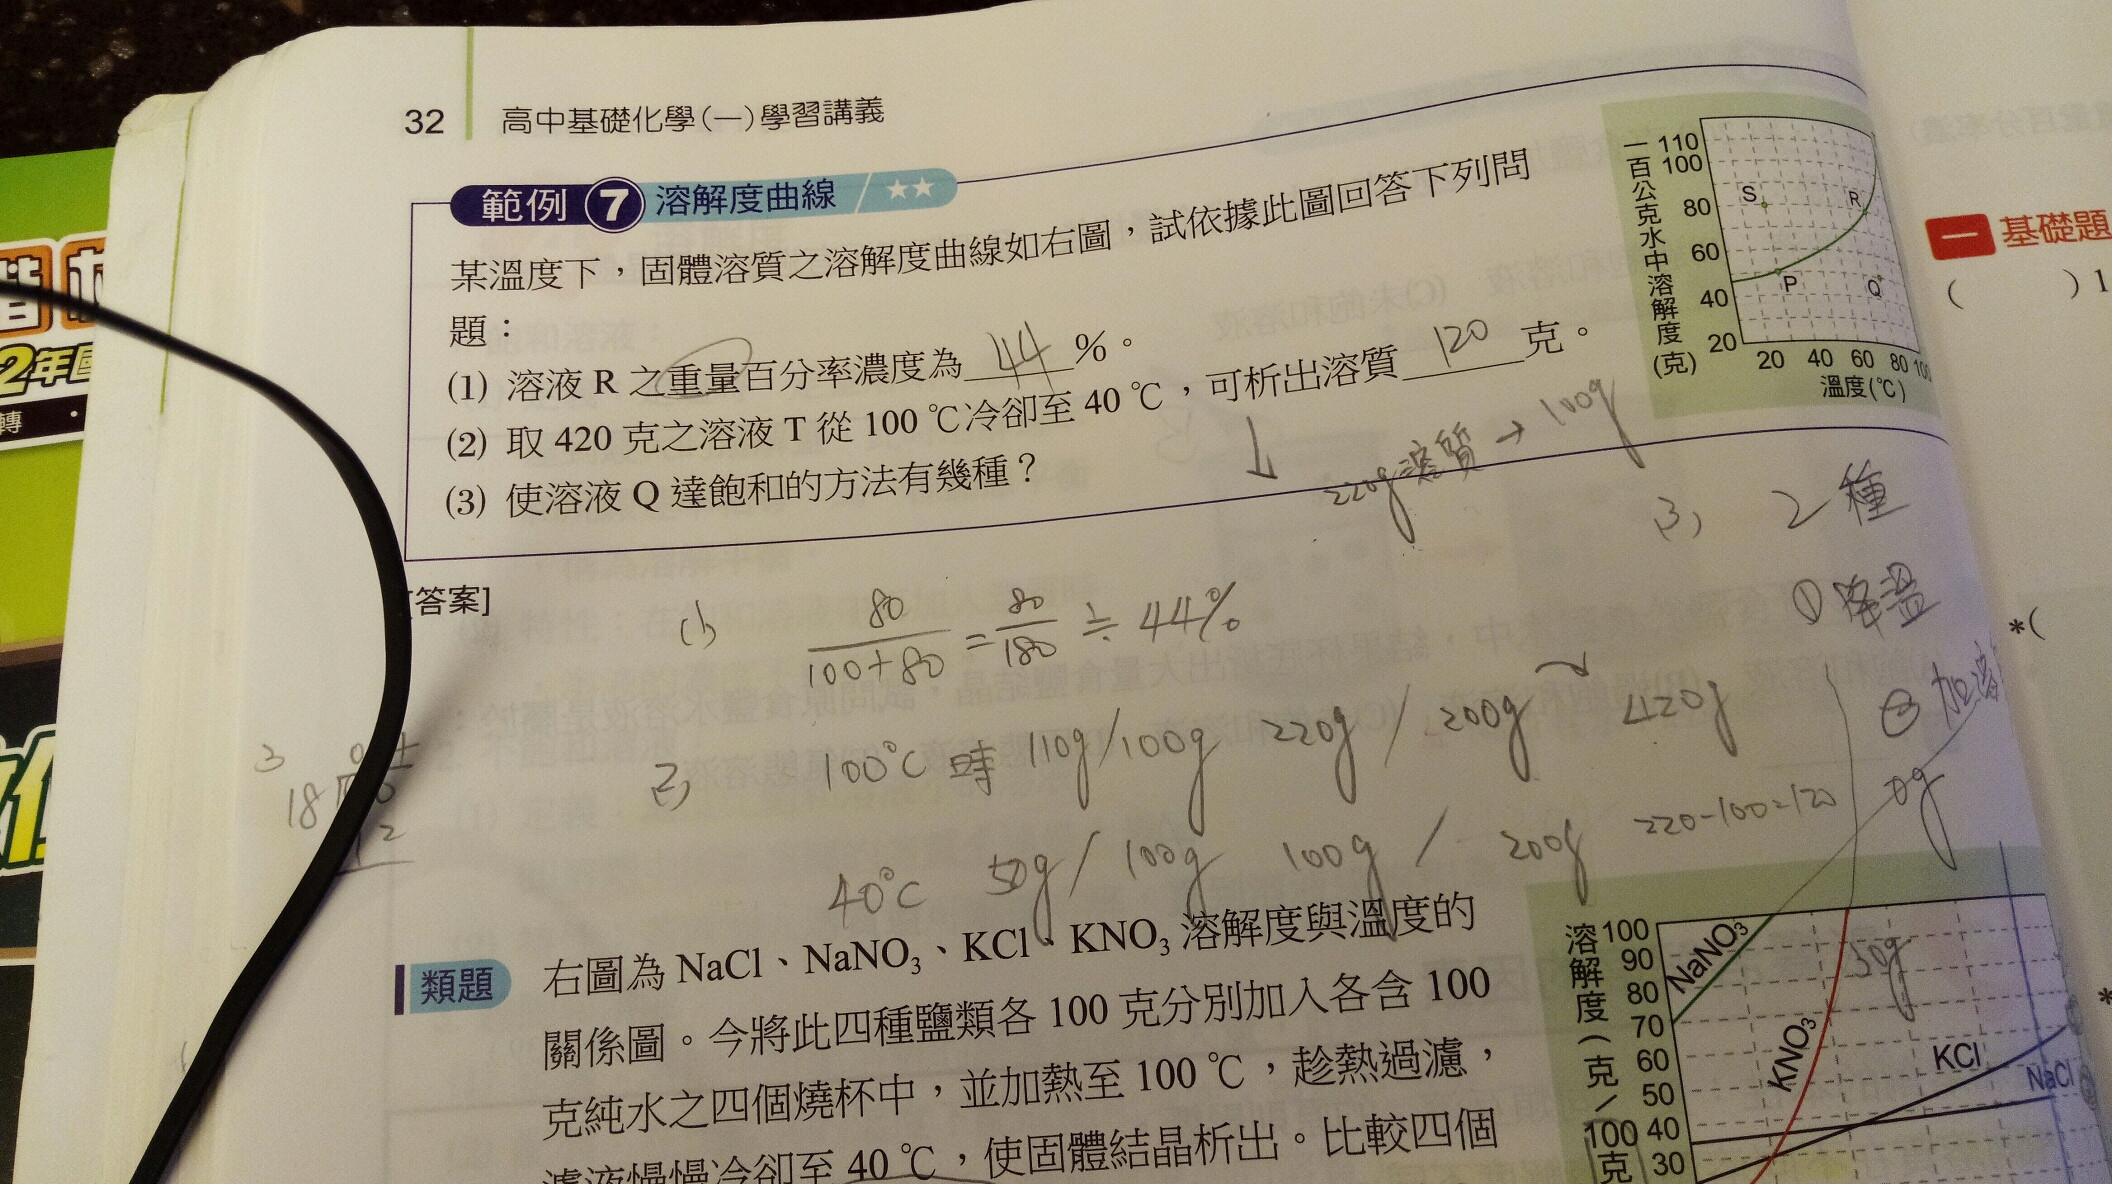 32 高中基礎化學(一)學習講義
範例 7 溶解度曲線 ★★
某溫度下,固體溶質之溶解度曲線如右圖,試依據此圖回答下列問
題:
(1) 溶液 R 之重量百分率濃度為 44 %。
(2) 取 420 克之溶液 T 從 100 ℃冷卻至 40 ℃,可析出溶質 120 克。
(3) 使溶液 Q 達飽和的方法有幾種?
↓ 220g溶質 → 100g
一百公克水中溶解度(克)
110
100
80
60
40
20
S
R
P
Q
20 40 60 80 100
溫度(℃)
(3) 2種
① 降溫
② 加溶
[答案]
(1) 80/(100+80) = 80/180 ≒ 44%
(2) 100℃時 110g/100g 220g/200g 420g
40℃ 50g/100g 100g/200g 220-100=120
類題 右圖為 NaCl、NaNO₃、KCl、KNO₃ 溶解度與溫度的
關係圖。今將此四種鹽類各 100 克分別加入各含 100
克純水之四個燒杯中,並加熱至 100 ℃,趁熱過濾,
濾液慢慢冷卻至 40 ℃,使固體結晶析出。比較四個
溶解度(克/100克
100
90
80
70
60
50
40
30
NaNO₃
KNO₃
KCl
NaCl
0g
50g
一 基礎題
( ) 1
*(
*
2年國
轉